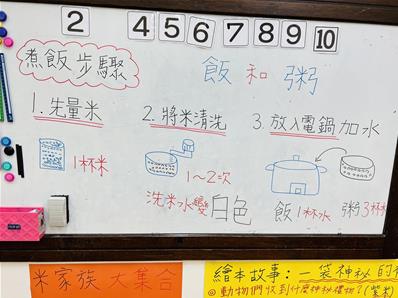 2 4 5 6 7 8 9 10
煮飯步驟
飯和粥
1. 先量米
2. 將米清洗
3. 放入電鍋加水
1杯米
1~2次
洗米水變白色
飯1杯水
粥3杯
米家族大集合
繪本故事：一袋神秘的
◎動物們收到什麼神秘禮物？(紫米)